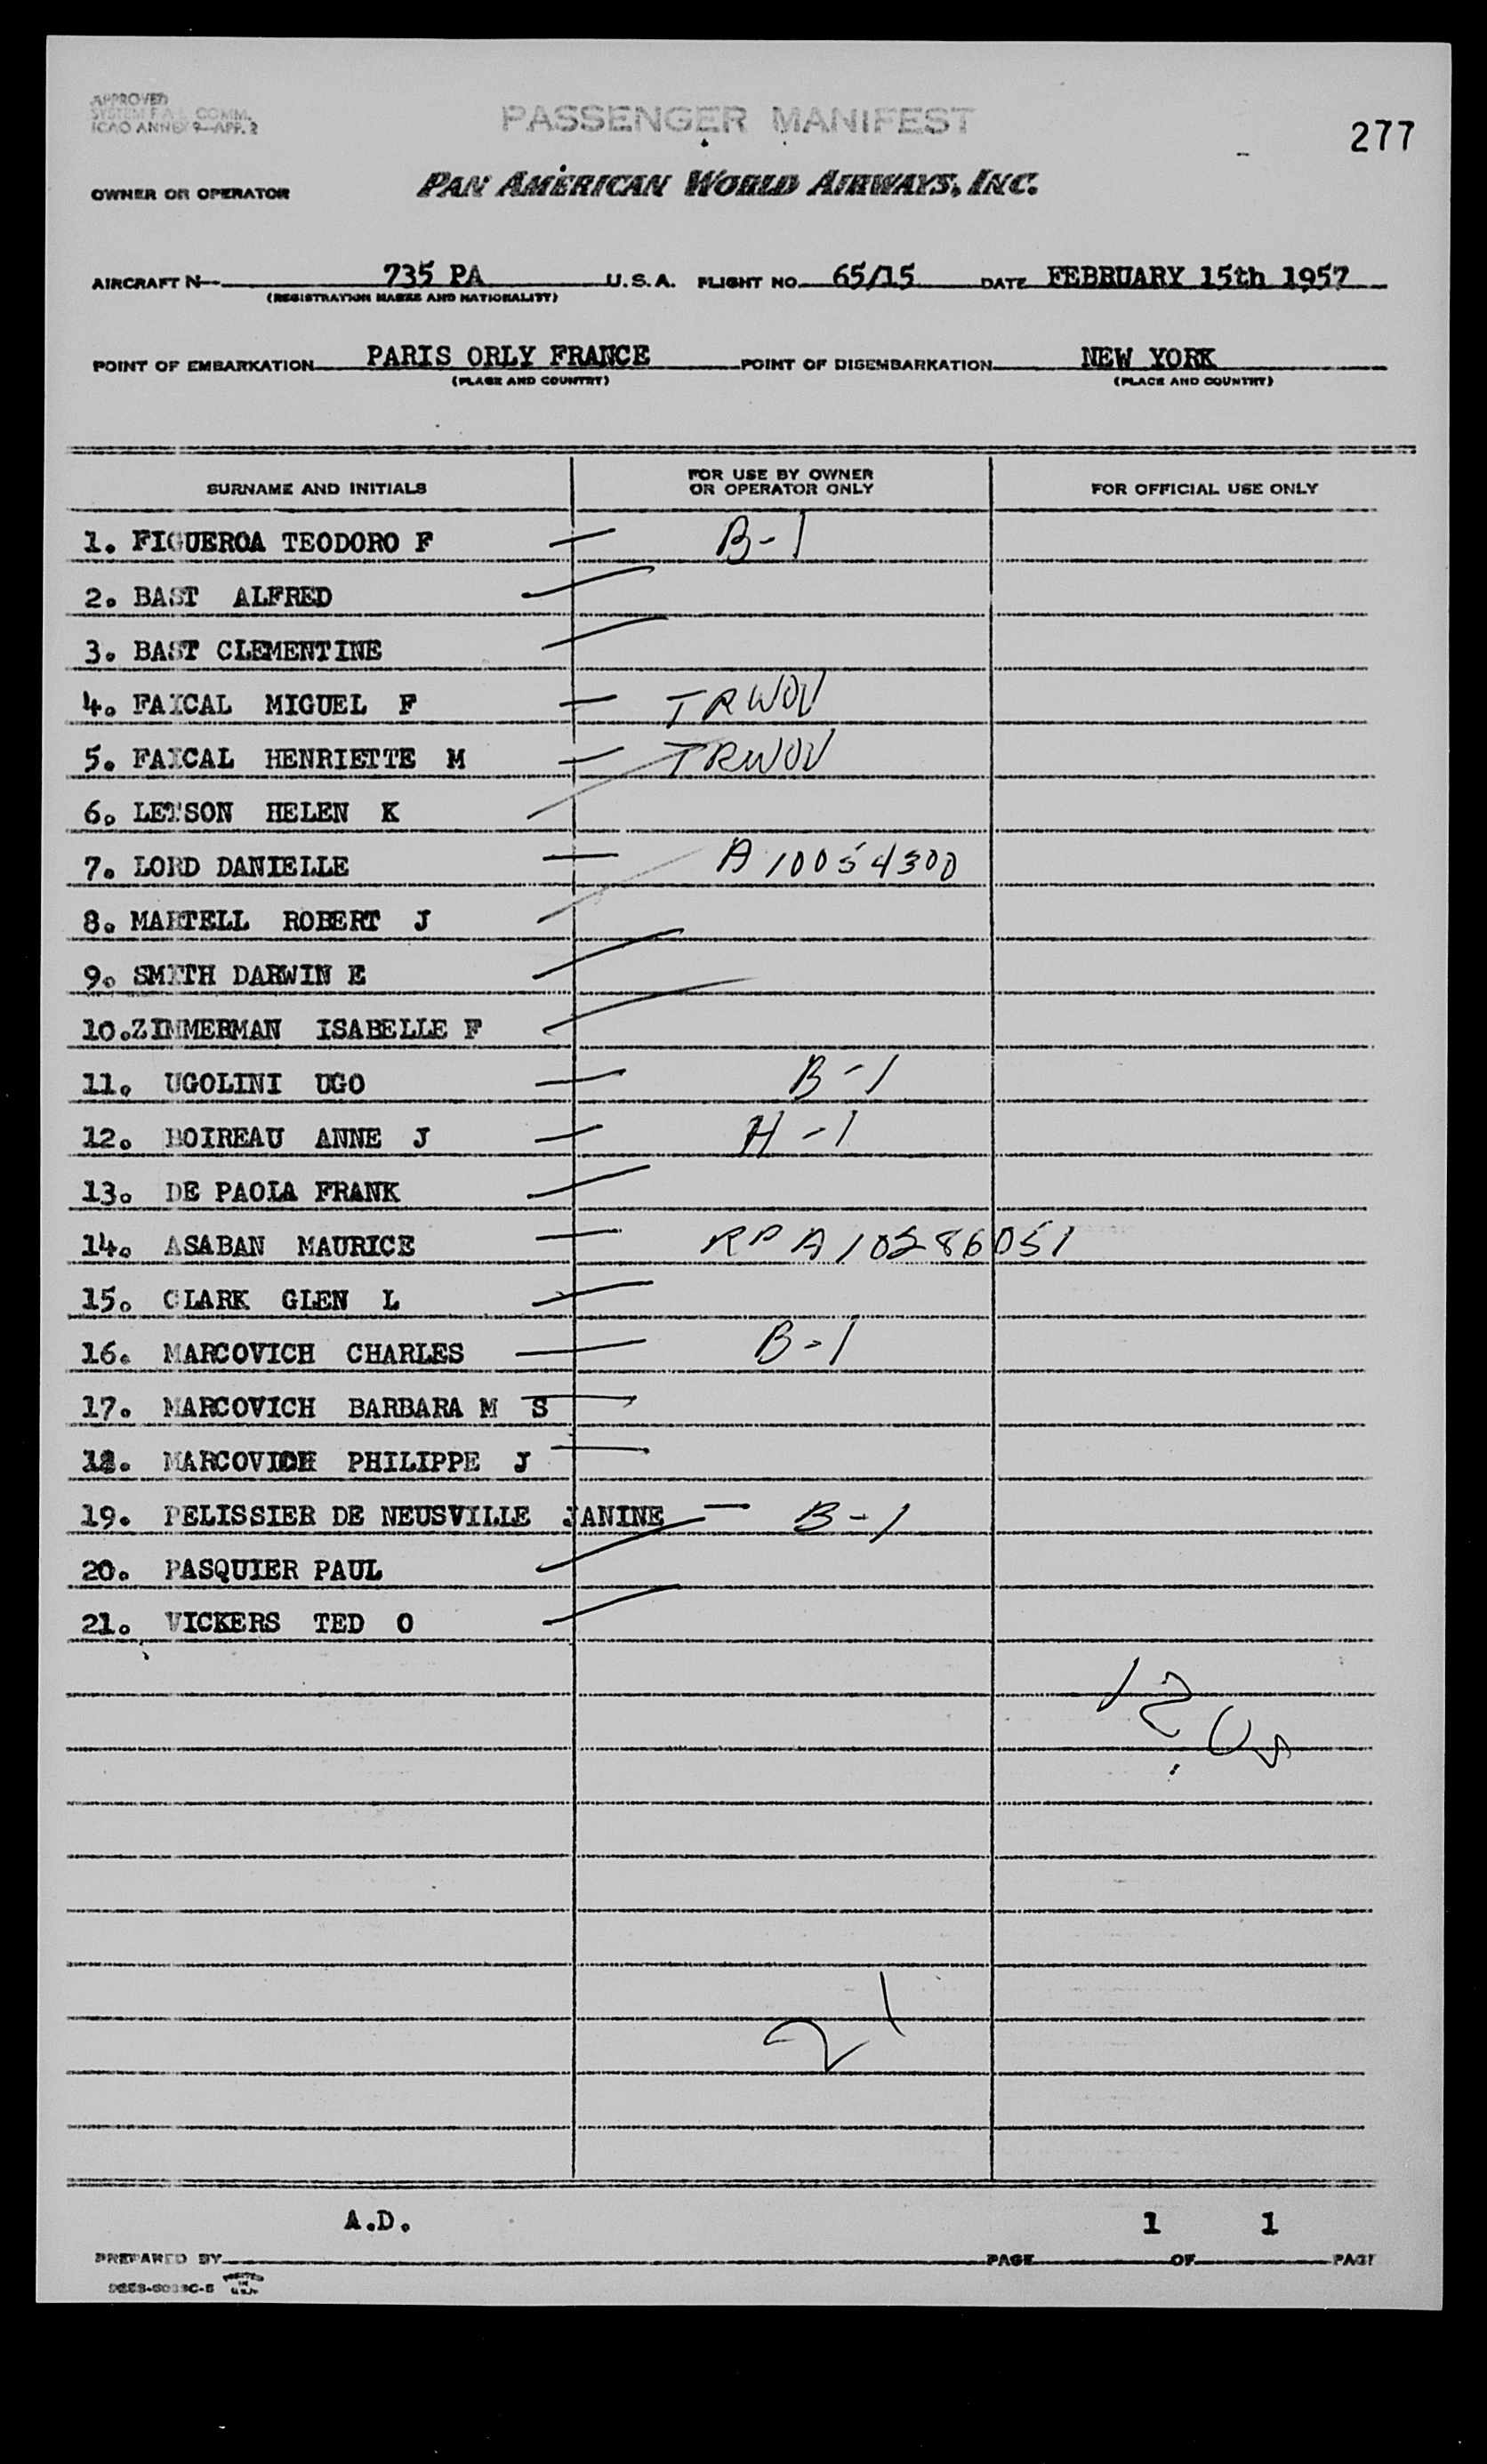 APPROVED
SYSTEM F.A.L. COMM.
ICAO ANNEX 9—APP. 2
PASSENGER MANIFEST
277
OWNER OR OPERATOR PAN AMERICAN WORLD AIRWAYS, INC.
AIRCRAFT N— 735 PA U.S.A. FLIGHT NO. 65/15 DATE FEBRUARY 15th 1957
(REGISTRATION MARKS AND NATIONALITY)
POINT OF EMBARKATION PARIS ORLY FRANCE POINT OF DISEMBARKATION NEW YORK
(PLACE AND COUNTRY) (PLACE AND COUNTRY)
SURNAME AND INITIALS FOR USE BY OWNER OR OPERATOR ONLY FOR OFFICIAL USE ONLY
1. FIGUEROA TEODORO F — B-1
2. BAST ALFRED
3. BAST CLEMENTINE
4. FAICAL MIGUEL F — TRWOV
5. FAICAL HENRIETTE M — TRWOV
6. LETSON HELEN K
7. LORD DANIELLE — A10054300
8. MARTELL ROBERT J
9. SMITH DARWIN E
10. ZIMMERMAN ISABELLE F
11. UGOLINI UGO — B-1
12. BOIREAU ANNE J — H-1
13. DE PAOLA FRANK
14. ASABAN MAURICE — RP A10286051
15. CLARK GLEN L
16. MARCOVICH CHARLES — B-1
17. MARCOVICH BARBARA M S —
18. MARCOVICH PHILIPPE J —
19. PELISSIER DE NEUSVILLE JANINE — B-1
20. PASQUIER PAUL
21. VICKERS TED O
12
21
A.D. 1 1
PREPARED BY PAGE OF PAGE
PRINTED IN U.S.A.